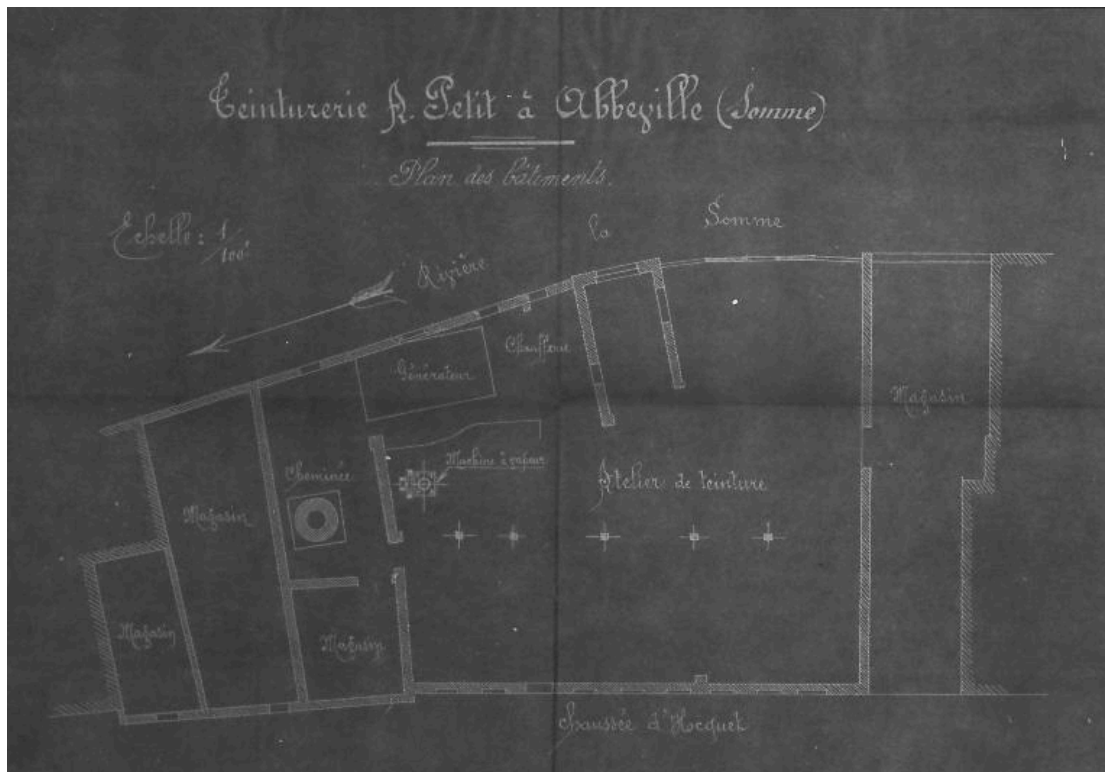 Teinturerie A. Petit à Abbeville (Somme)
Plan des bâtiments.
Echelle: 1/100e
Rivière la Somme
Générateur
Chaufferie
Magasin
Cheminée
Machine à vapeur
Magasin
Atelier de teinture
Magasin
Magasin
chaussée d'Hocquet